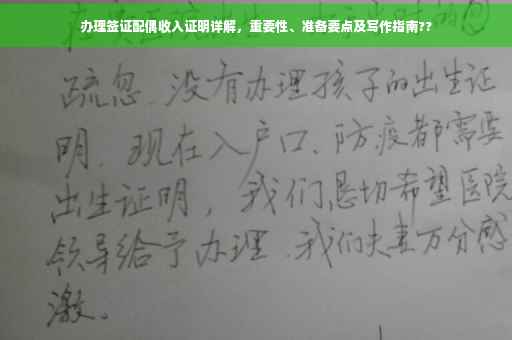 办理签证配偶收入证明详解,重要性、准备要点及写作指南??
疏忽、没有办理孩子的出生证
明、现在入户口、防疫都需要
出生证明,我们恳切希望医院
领导给予办理、我们夫妻万分感
激。